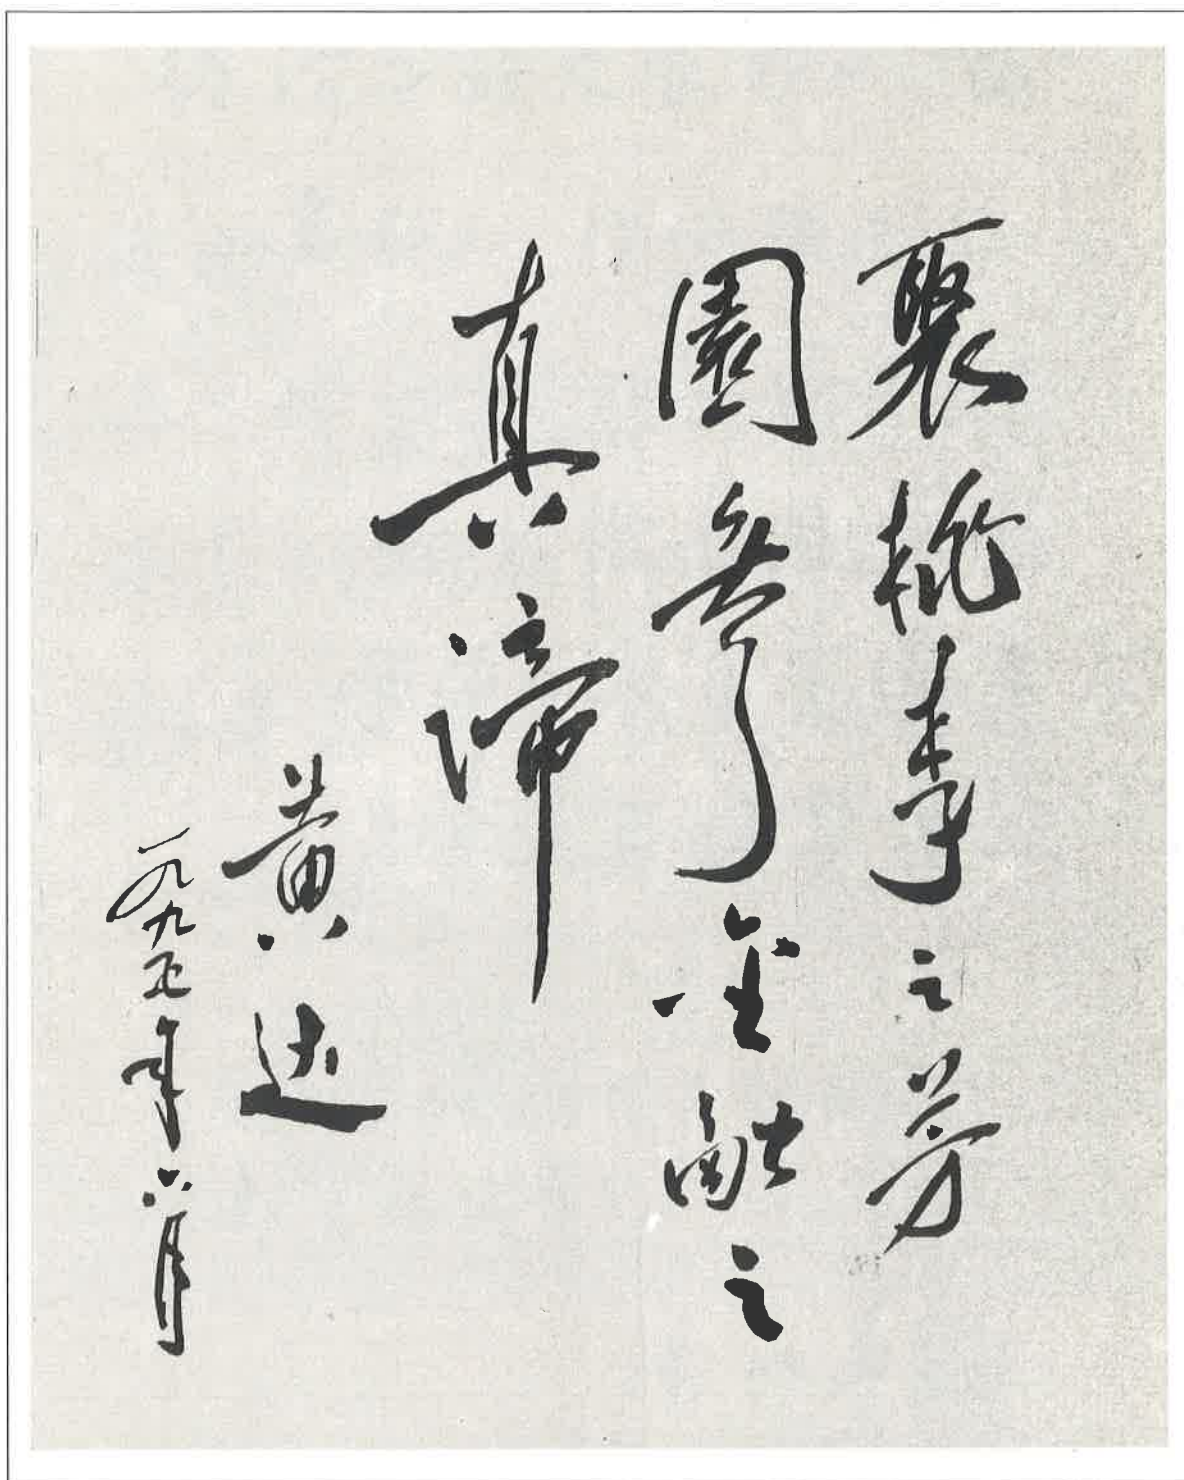 聚桃李之芳
園参金融之
真谛
黄达
一九九五年六月